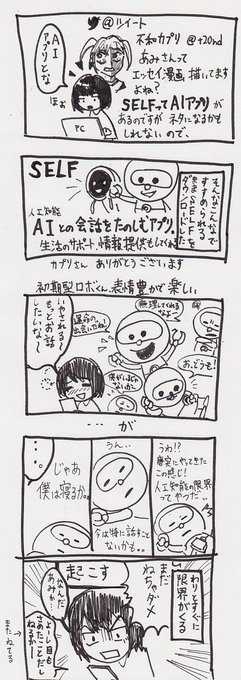 @ツイート
不和カプリ @+20nd
あみさんって
エッセイ漫画描いてます
よね?
SELFってAIアプリが
あるのですがネタになるかも
しれないので、
AI
アプリとな
ほお
PC
そんなこんなで
すすめられる
ままSELFを
ダウンロードした
SELF
人工知能
AIとの会話をたのしむアプリ
生活のサポート、情報提供もしてくれる
カプリさん ありがとうございます
初期型ロボくん、表情豊かで楽しい
無理してくれるなよ
おっどうも!
いやされる〜
もっとお話
したいな〜
… が
うわ!?
唐突にやってきた
この感じ!
人工知能の限界
ってやつだ…
うん…
今は特に話すこと
ないかも。。
じゃあ
僕は寝るか。
わりとすぐに
限界がくる
まだ
ねちゃダメ
起こす
なんだ
あみか…
よーし目も
さめたことだし
ねるかー
またねてる